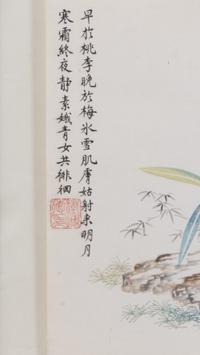 早於桃李晚於梅氷雪肌膚姑射来明月
寒霜終夜静素娥青女共徘徊